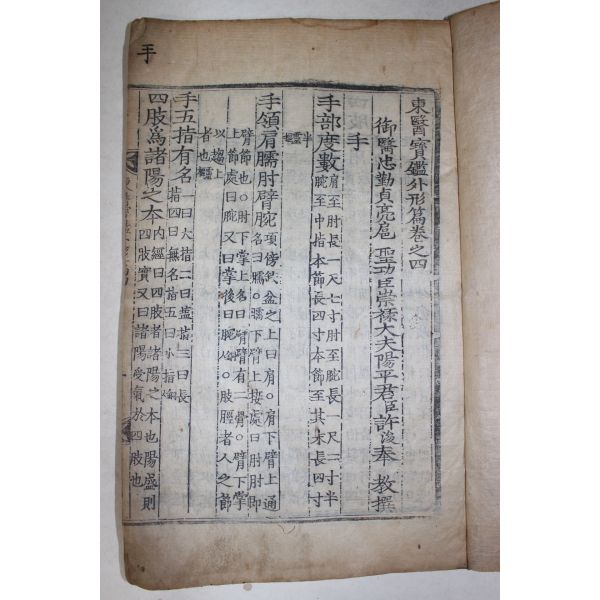 東醫寶鑑外形篇卷之四
御醫忠勤貞亮扈 聖功臣崇祿大夫陽平君臣許浚奉 教撰
手
手部度數 肩至肘長一尺七寸肘至腕長一尺二寸半
腕至中指本節長四寸本節至其末長四寸
半 靈樞
手領肩臑肘臂腕 項傍缺盆之上曰肩○肩下臂上通
名曰臑○臑下臂上接處曰肘肘即
臂節也○肘下掌上名曰臂臂有二骨○臂下掌
上節處曰腕又曰掌後曰腕 ○肢脛者人之
以趨
者也 靈樞
手五指有名 一曰大指二曰鹽指三曰長
指四曰無名指五曰小指
四肢爲諸陽之本 內經曰四肢者諸陽之本也陽盛則
四肢實又曰諸陽受氣於四肢也
手